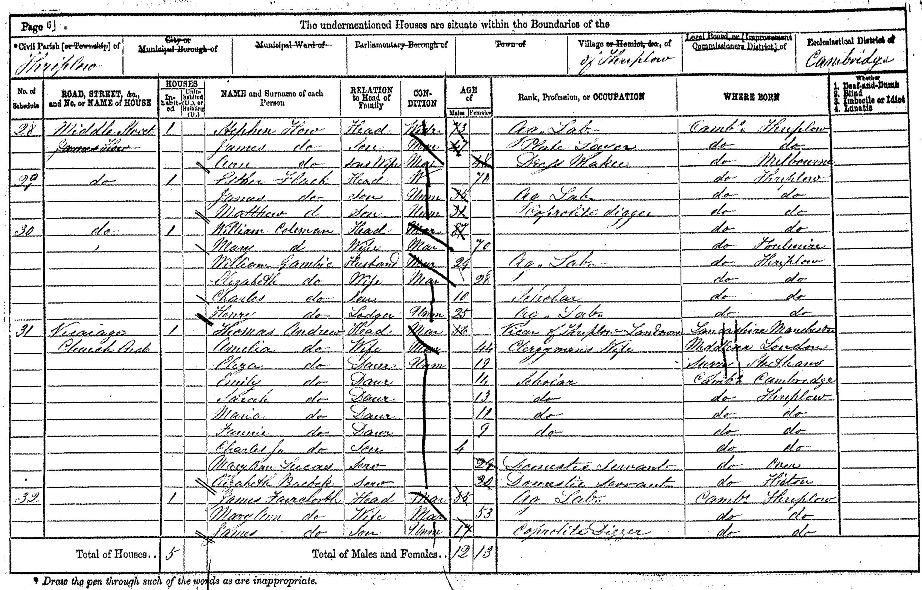 Page 6] The undermentioned Houses are situate within the Boundaries of the
*Civil Parish [or Township] of City or Municipal Borough of Municipal Ward of Parliamentary Borough of Town of Village or Hamlet, &c., of Local Board, or [Improvement Commissioners District] of Ecclesiastical District of
Thriplow of Thriplow Cambridge
No. of Schedule ROAD, STREET, &c., and No. or NAME of HOUSE HOUSES Inhabited NAME and Surname of each Person RELATION to Head of Family CONDITION AGE of Males Females Rank, Profession, or OCCUPATION WHERE BORN Whether 1. Deaf-and-Dumb 2. Blind 3. Imbecile or Idiot 4. Lunatic
28 Middle Street 1 Stephen How Head 73 Ag. Lab. Camb. Thriplow
James How James do Son Mar 47 Plate Layer do do
Ann do Sons Wife Mar Dress Maker do Melbourne
29 do 1 Esther Flack Head W 70 do Thriplow
James do Son Unm 45 Ag Lab do do
Matthew d Son Unm Coprolite digger do do
30 do 1 William Coleman Head Mar do do
Mary d Wife Mar 70 do Foulmire
William Gamlie Husband Mar Ag. Lab do Thriplow
Elizabeth do Wife Mar 28 do do
Charles do Son 10 Scholar do do
Henry do Lodger Unm 25 Ag. Lab do do
31 Vicarage 1 Thomas Andrew Head Mar Vicar of Thriplow Lancashire Manchester
Church Amelia do Wife Mar 44 Clergymans Wife Middlesex London
Eliza do Daur Unm 19 Surry
Emily do Daur 14 Scholar Camb. Cambridge
Sarah do Daur 13 do do Thriplow
Maria do Daur 11 do do do
Fannie do Daur 9 do do do
Charles Jn do Son 4 do do
Mary Ann Lucas Serv Domestic Servant do
Elizabeth Serv 20 Domestic Servant do Histon
32 1 James Farnworth Head Mar 55 Ag Lab Camb. Thriplow
Mary Ann do Wife Mar 53 do do
James do Son Unm 17 Coprolite Digger do do
Total of Houses.. 5 Total of Males and Females.. 12 13
* Draw the pen through such of the words as are inappropriate.